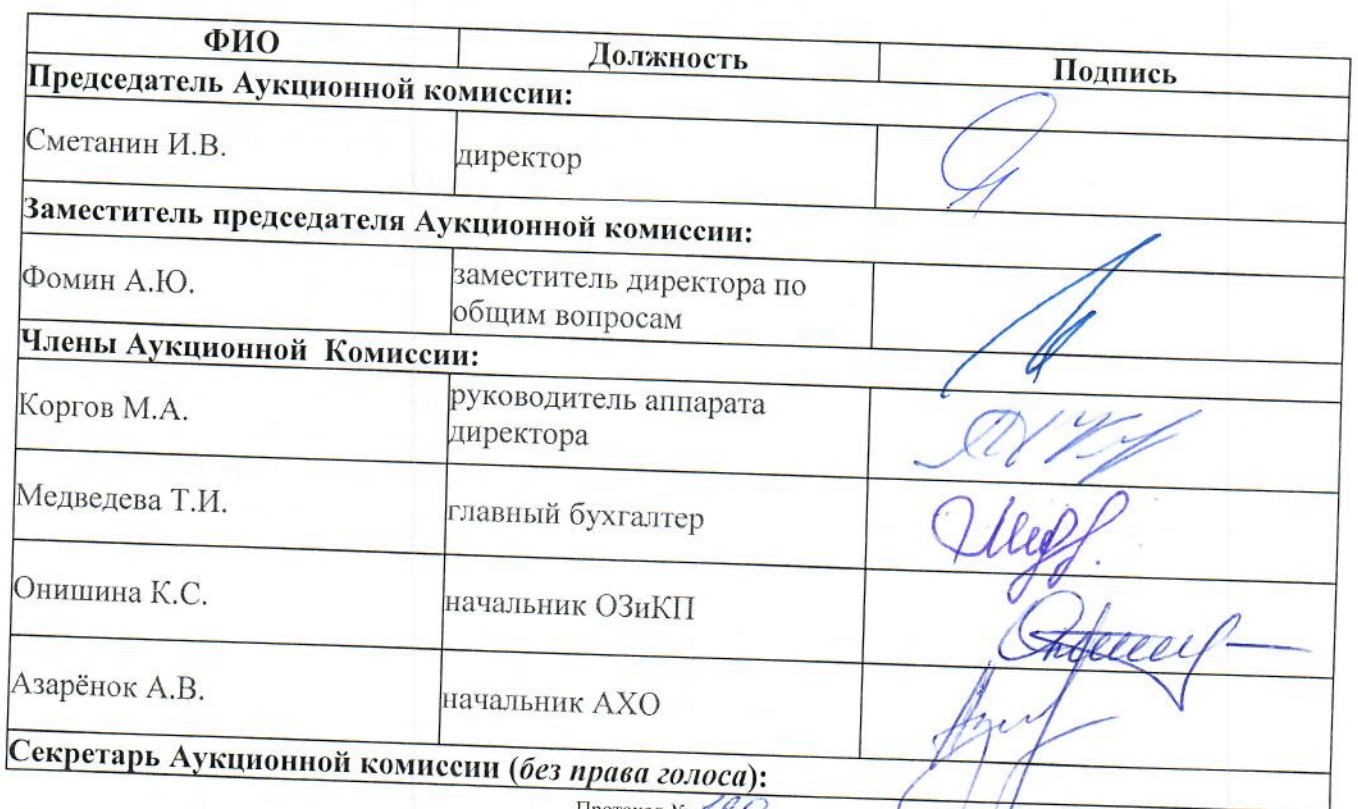 ФИО Должность Подпись
Председатель Аукционной комиссии:
Сметанин И.В. директор
Заместитель председателя Аукционной комиссии:
Фомин А.Ю. заместитель директора по
общим вопросам
Члены Аукционной Комиссии:
Коргов М.А. руководитель аппарата
директора
Медведева Т.И. главный бухгалтер
Онишина К.С. начальник ОЗиКП
Азарёнок А.В. начальник АХО
Секретарь Аукционной комиссии (без права голоса):
Протокол №